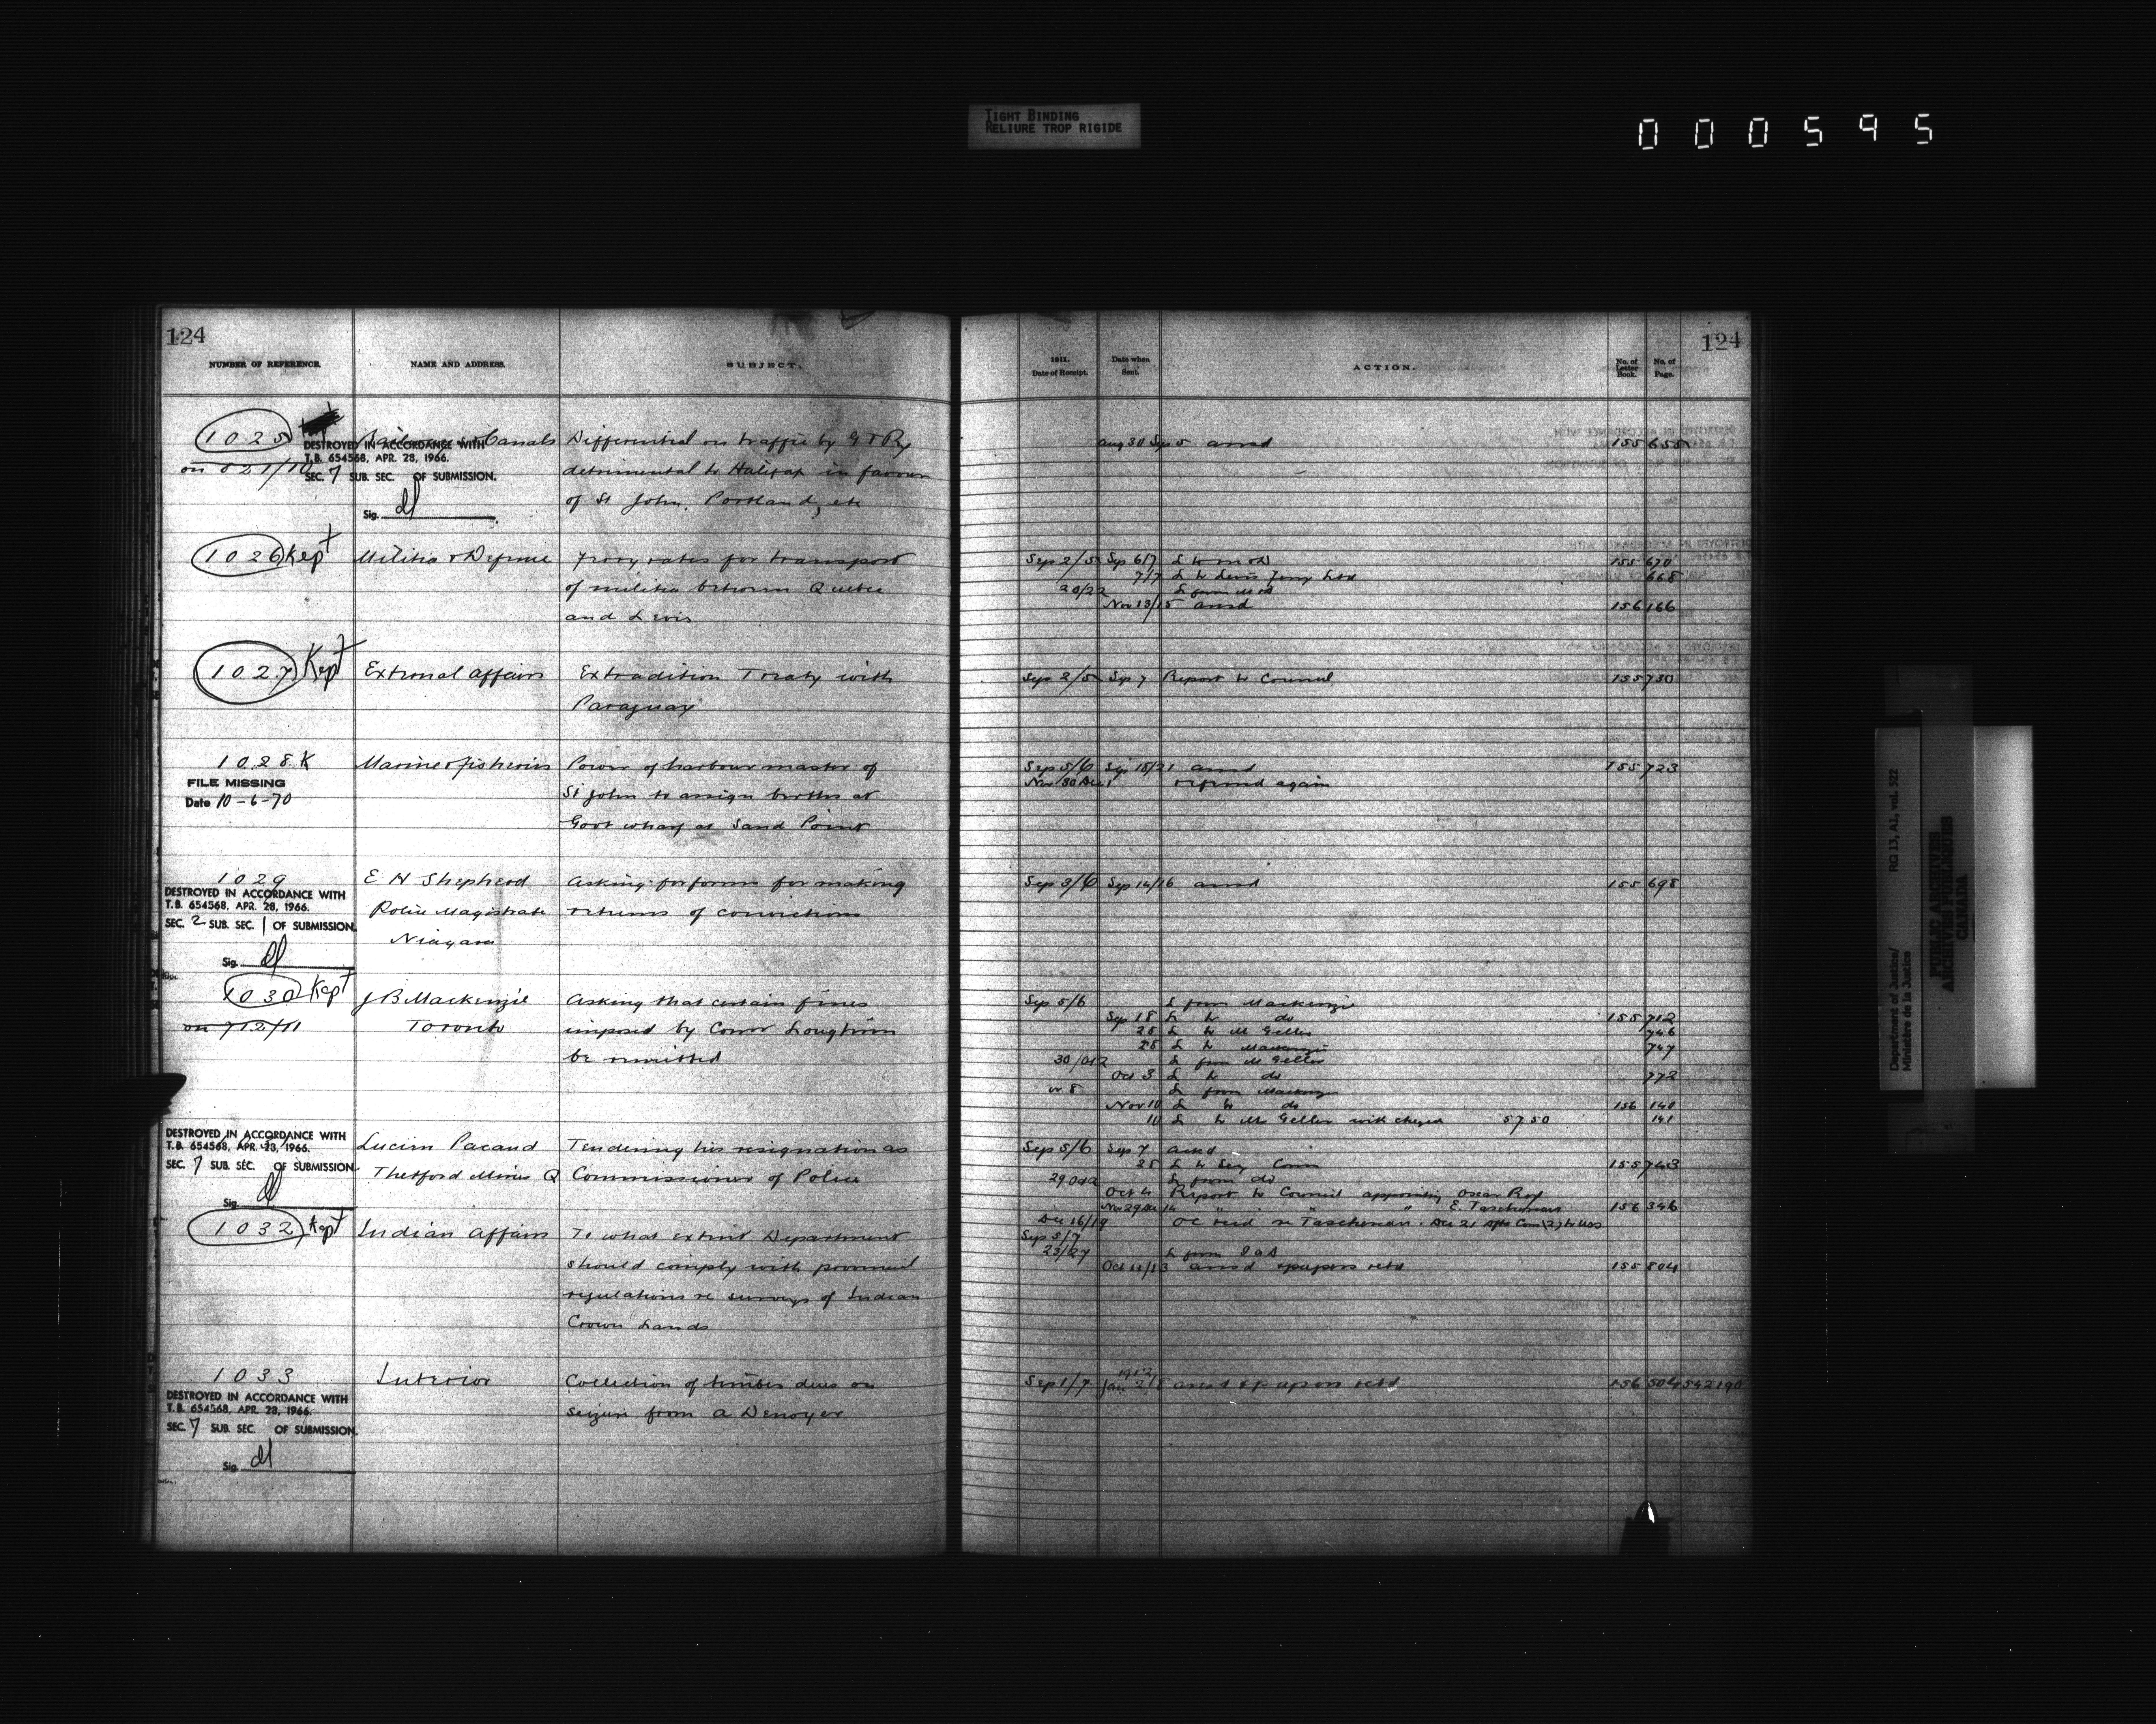 TIGHT BINDING
RELIURE TROP RIGIDE
000595
124
NUMBER OF REFERENCE.
NAME AND ADDRESS.
SUBJECT.
1025
on 821/10
DESTROYED IN ACCORDANCE WITH
T.B. 654568, APR. 28, 1966.
SEC. 7 SUB. SEC. OF SUBMISSION.
Sig.
Railways & Canals
Differential on traffic by G T Ry
detrimental to Halifax in favour
of St John, Portland, etc
1026 Kept
Militia & Defence
Ferry rates for transport
of militia between Quebec
and Levis
1027 Kept
External Affairs
Extradition Treaty with
Paraguay
1028 K
FILE MISSING
Date 10-6-70
Marine & Fisheries
Power of harbour master of
St John to assign berths at
Govt wharf at Sand Point
1029
DESTROYED IN ACCORDANCE WITH
T.B. 654568, APR. 28, 1966.
SEC. 2 SUB. SEC. 1 OF SUBMISSION.
Sig.
E H Shepherd
Police Magistrate
Niagara
Asking for forms for making
returns of convictions
1030 Kept
on 712/11
J B Mackenzie
Toronto
Asking that certain fines
imposed by Comr Loughrin
be remitted
DESTROYED IN ACCORDANCE WITH
T.B. 654568, APR. 28, 1966.
SEC. 7 SUB. SEC. OF SUBMISSION.
Sig.
Lucien Pacaud
Thetford Mines Q
Tendering his resignation as
Commissioner of Police
1032 Kept
Indian Affairs
To what extent Department
should comply with provincial
regulations re surveys of Indian
Crown Lands
1033
DESTROYED IN ACCORDANCE WITH
T.B. 654568, APR. 28, 1966.
SEC. 7 SUB. SEC. OF SUBMISSION.
Sig.
Interior
Collection of timber dues on
seizure from A Denoyer
124
1911.
Date of Receipt.
Date when
Sent.
ACTION.
No. of
Letter
Book.
No. of
Page.
Aug 30 Sep 5 ansd 155 655
Sep 2/5 Sep 6/7 L to M & D 155 670
7/7 L to Levis Ferry Ltd 668
20/22 L from M & D
Nov 13/15 ansd 156 166
Sep 2/5 Sep 7 Report to Council 155 730
Sep 5/6 Sep 18/21 ansd 155 723
Nov 30 Dec 1 referred again
Sep 3/6 Sep 14/16 ansd 155 698
Sep 5/6 L from Mackenzie
Sep 18 L to do 155 712
28 L to M Geller 746
28 L to Mackenzie 747
30/Oct 2 L from M Geller
Oct 3 L to do 772
L from Mackenzie
Nov 10 L to do 156 140
10 L to M Geller with cheque 57 50 141
Sep 5/6 Sep 7 ackd
28 L to Sey Comn 155 743
29 Oct 2 L from do
Oct 4 Report to Council appointing Oscar Roy
Nov 29 Dec 14 " " " E. Taschereau 156 346
Dec 16/19 OC recd re Taschereau. Dec 21
Sep 5/7
23/27 L from I a D
Oct 11/13 ansd & papers retd 155 804
1912
Sep 1/7 Jan 2/8 ansd & papers retd 156 504 542 190
Department of Justice/
Ministère de la Justice
RG 13, A1, vol. 522
PUBLIC ARCHIVES
ARCHIVES PUBLIQUES
CANADA